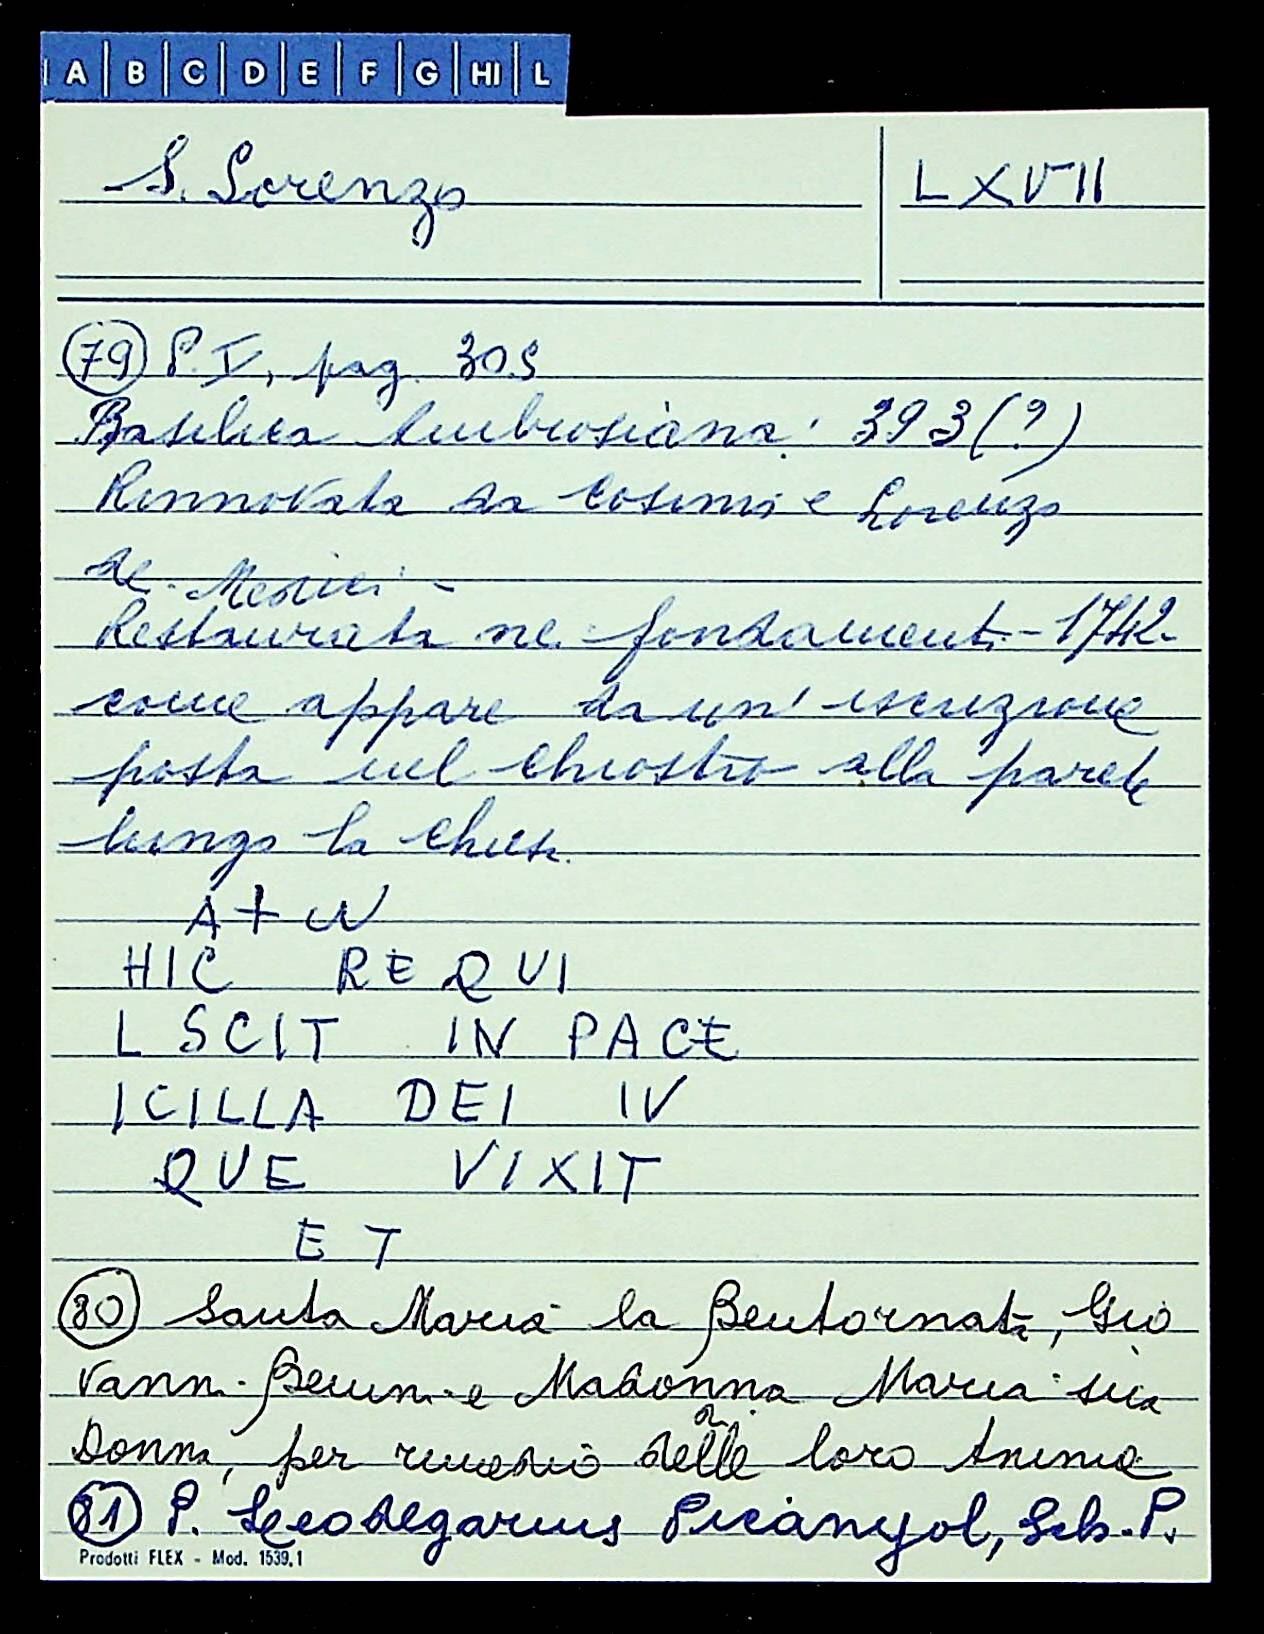 A B C D E F G HI L
S. Lorenzo
LXVII
79 P. V, pag. 305
Basilica Ambrosiana: 393(?)
Rinnovata da Cosimo e Lorenzo
de Medici -
Restaurata nei fondamenti - 1742
come appare da un'iscrizione
posta nel chiostro alla parete
lungo la chiesa.
A + W
HIC REQUI
L SCIT IN PACE
ICILLA DEI IV
QUE VIXIT
ET
80 Santa Maria la Bentornata, Gio
vanni e Madonna Maria sua
Donna, per rimedio della loro Anime
81 P. Leodegarius Picanyol, Sch. P.
Prodotti FLEX - Mod. 1539,1